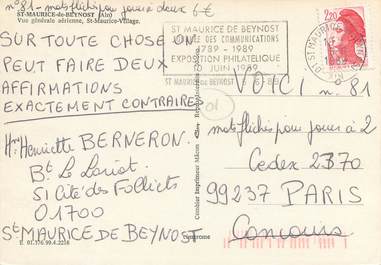 n°81 - mots fléchés pour jouer à deux 6€
ST-MAURICE-de-BEYNOST (Ain)
Vue générale aérienne, St-Maurice-Village.
SUR TOUTE CHOSE ON
PEUT FAIRE DEUX
AFFIRMATIONS
EXACTEMENT CONTRAIRES
Henriette BERNERON.
Bt. Le Loriot
51 Cité des Folliets
01700
St MAURICE DE BEYNOST
E. 01.376.99.4.2216
Combier Imprimeur Mâcon
ST MAURICE DE BEYNOST
DES COMMUNICATIONS
1789 - 1989
EXPOSITION PHILATELIQUE
JUIN 1989
ST MAURICE DE BEYNOST
2,20
VOICI n° 81
01
mots fléchés pour jouer à 2
Cedex 2370
99237 PARIS
Concours